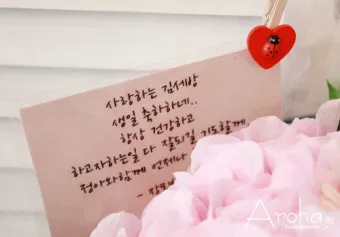 사랑하는 김서방
생일 축하하네..
항상 건강하고
하고자하는일 다 잘되길 기도할께
정아와함께 언제나
- 장모
Aroha